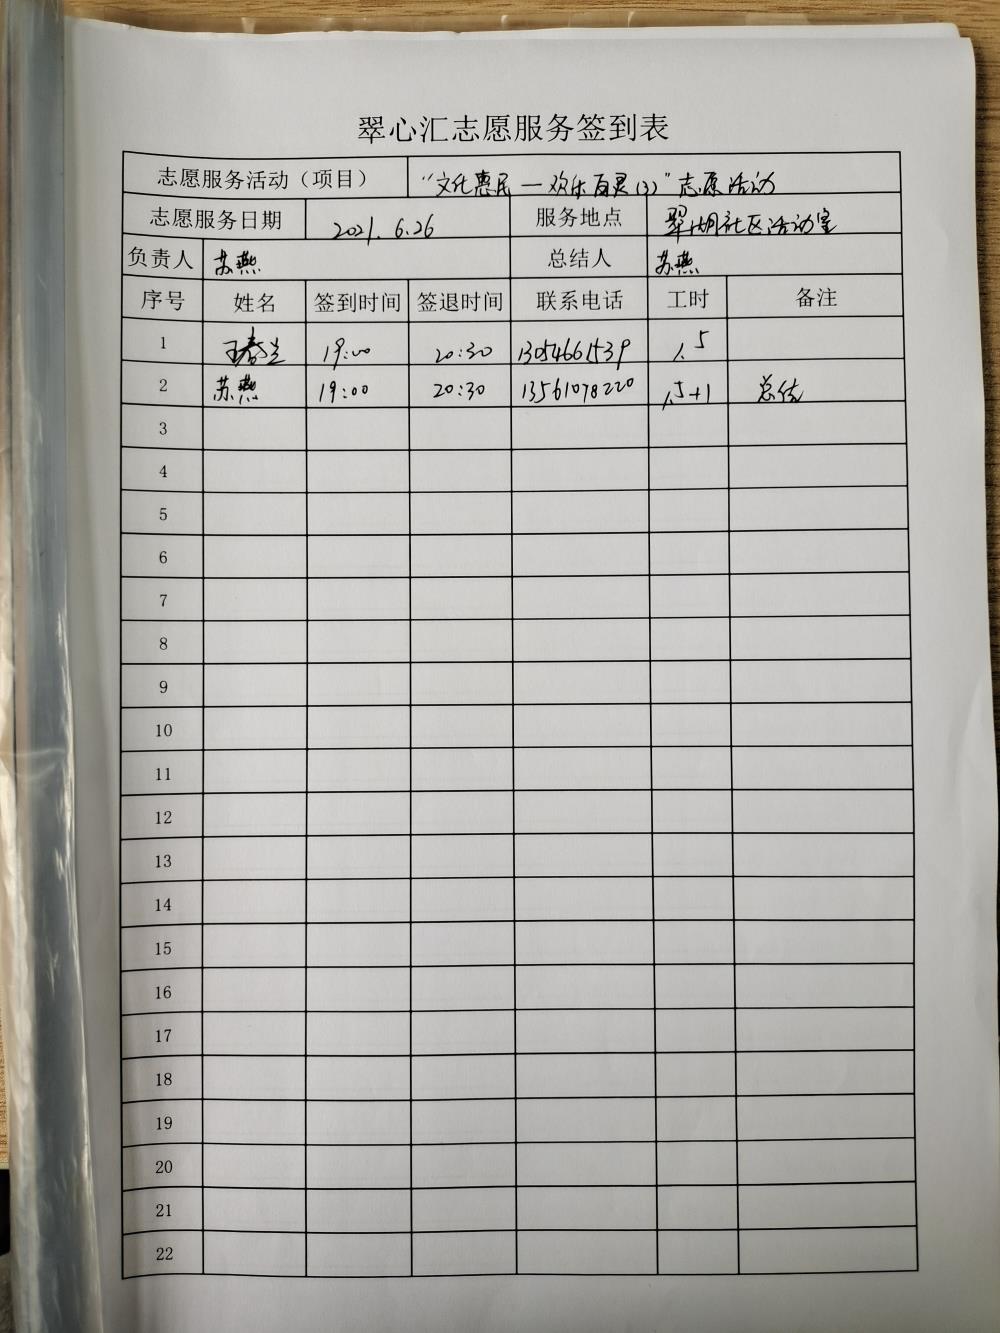 翠心汇志愿服务签到表
志愿服务活动（项目） “文化惠民—欢乐百灵(3)”志愿活动
志愿服务日期 2021.6.26 服务地点 翠湖社区活动室
负责人 苏燕 总结人 苏燕
序号 姓名 签到时间 签退时间 联系电话 工时 备注
1 王春兰 19:00 20:30 13054661539 1.5
2 苏燕 19:00 20:30 13561078220 1.5+1 总结
3
4
5
6
7
8
9
10
11
12
13
14
15
16
17
18
19
20
21
22